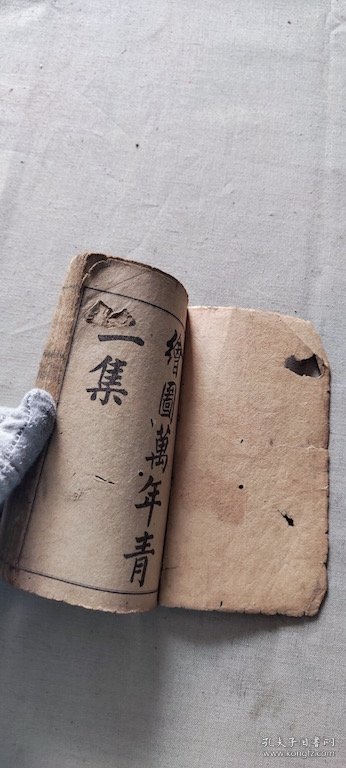 繪圖萬年青
一集
孔夫子旧书网
www.kongfz.com